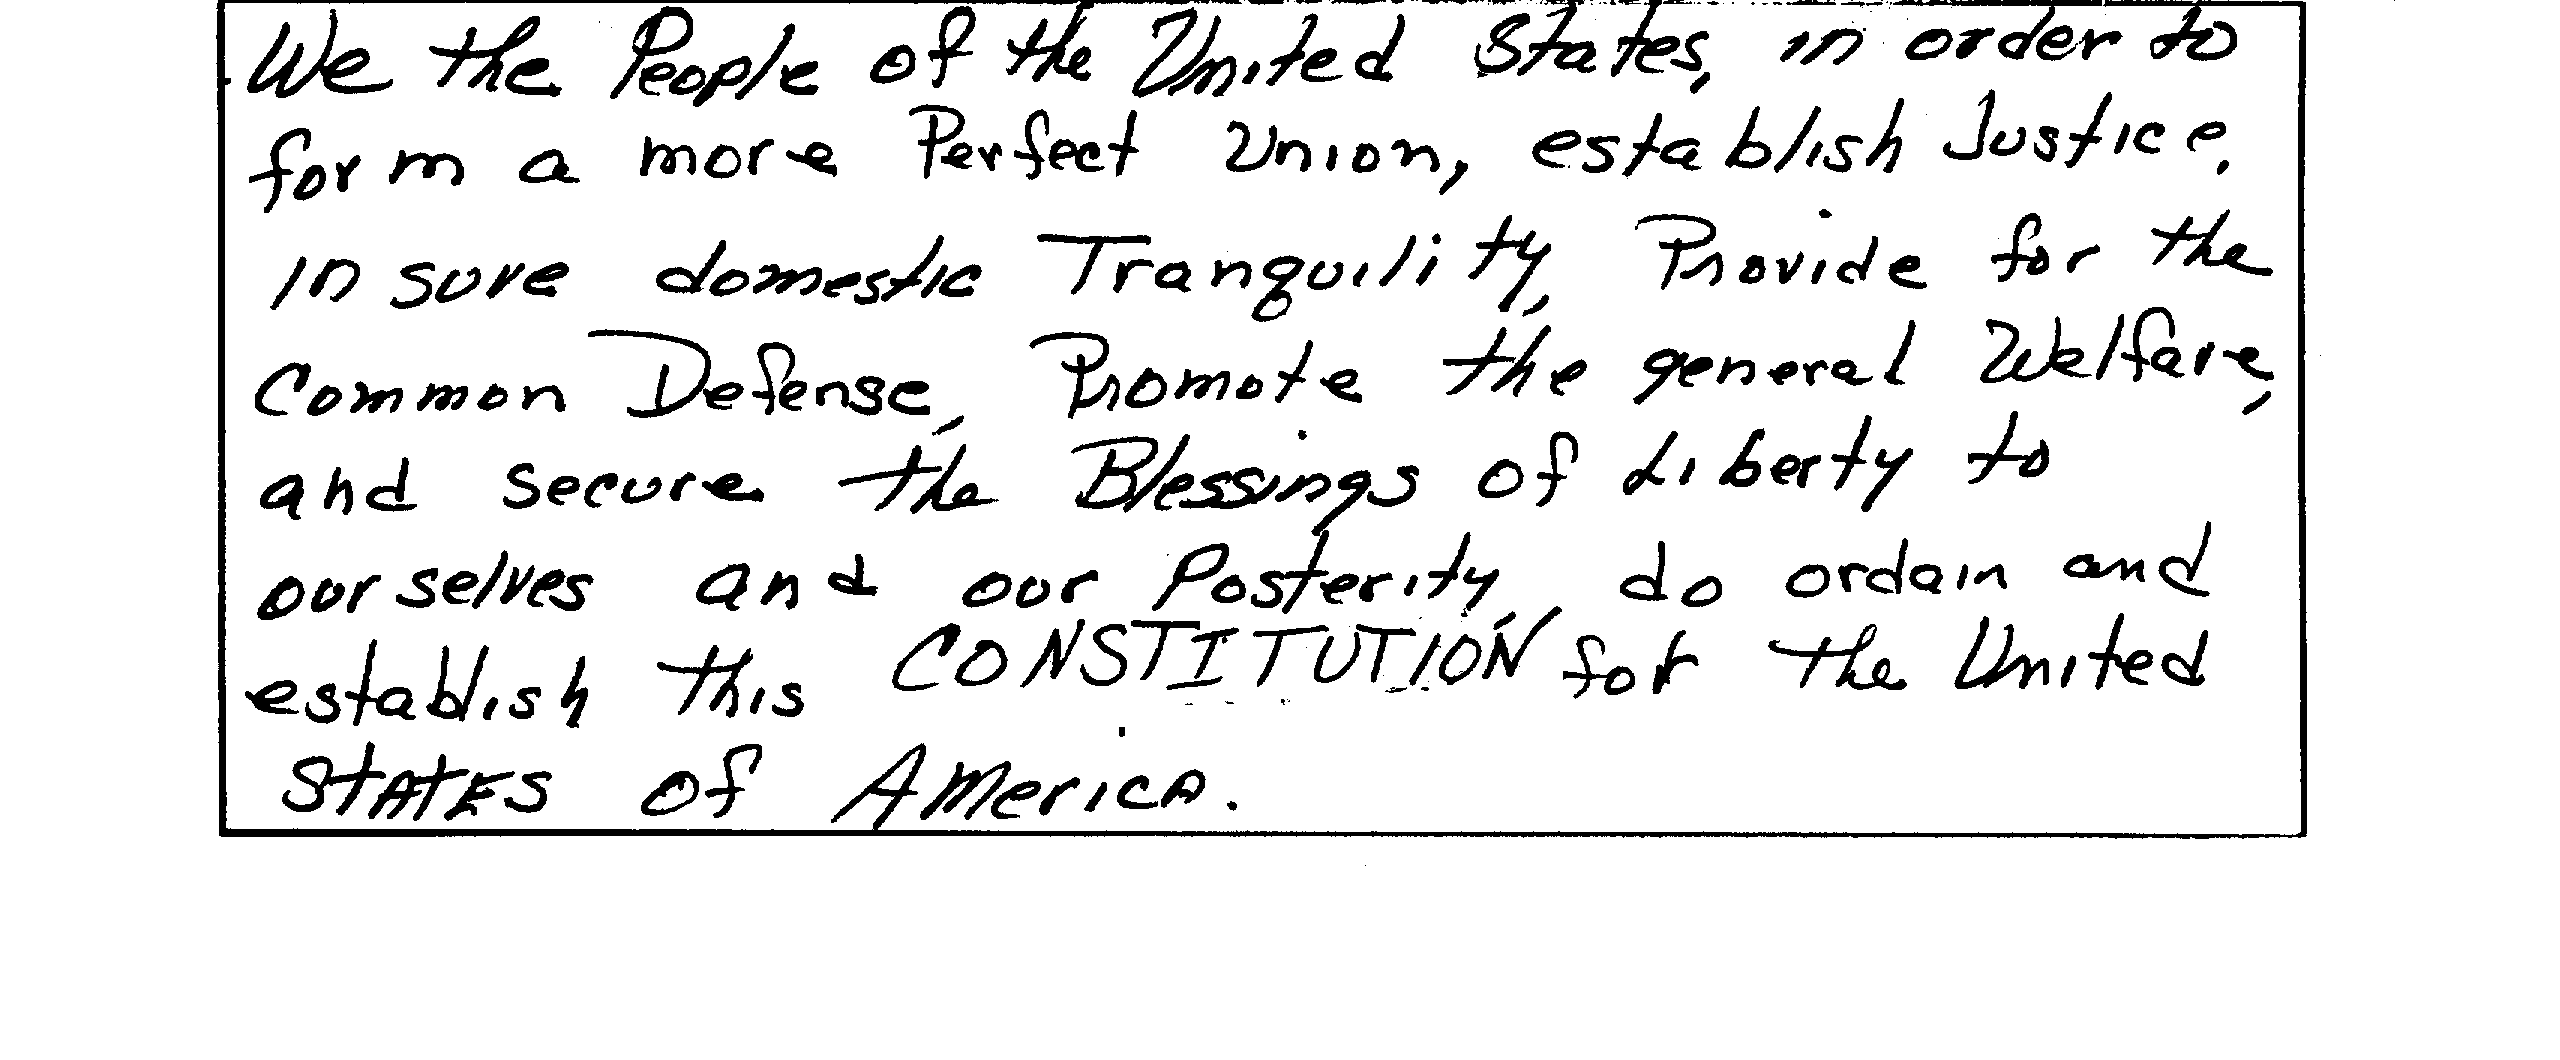 We the People of the United States, in order to
form a more Perfect Union, establish Justice,
insure domestic Tranquility, Provide for the
Common Defense, Promote the general Welfare,
and secure the Blessings of Liberty to
ourselves and our Posterity, do ordain and
establish this CONSTITUTION for the United
STATES of America.